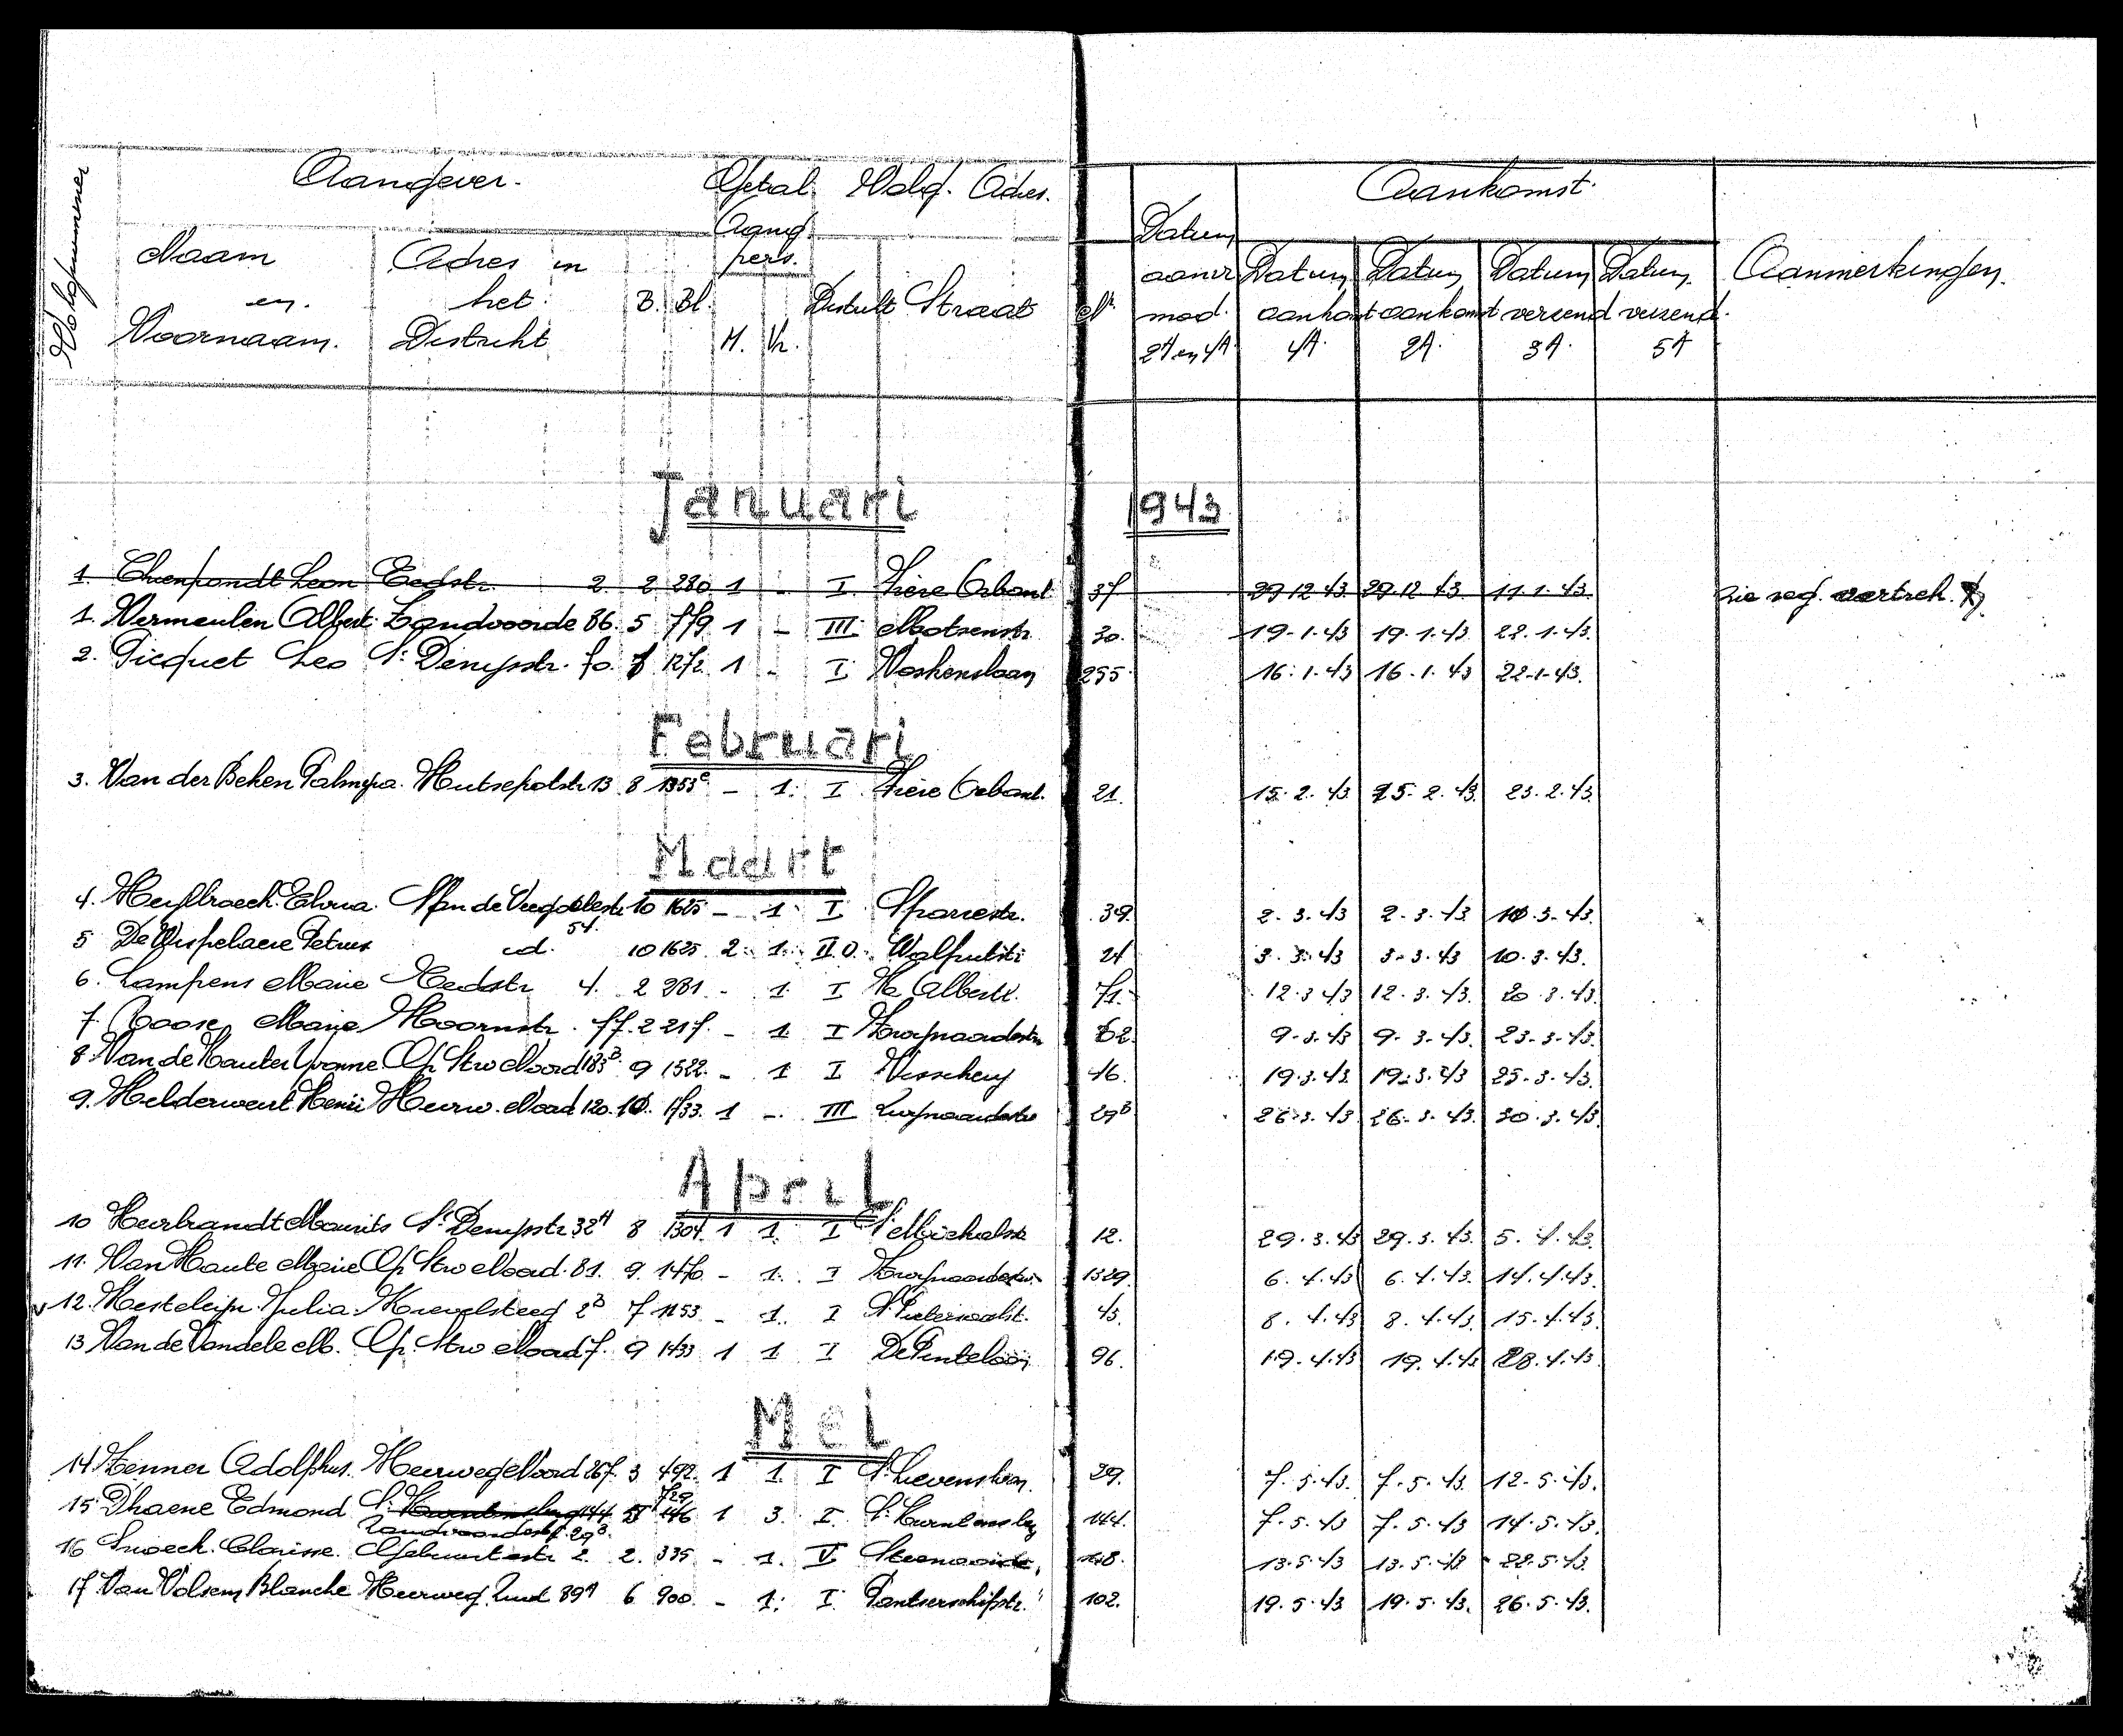 Volgnummer
Aangever. Getal Volg. Adres. Aankomst.
Naam en Voornaam. Adres in het Distrikt B. Bl. Aang. pers. M. Vr. Distrikt Straat Nr. Datum aanvr mod. 2A en 4A Datum aankomst 4A. Datum aankomst 2A. Datum versend 3A. Datum versend. 5A Aanmerkingen.
Januari 1943
1. Leon Eedstr. 2. 2 280 1 - I Frère Orbanl 37 29.12.43 29.12.43 11.1.43. Zie reg. vertrek.
1. Vermeulen Albert Zandvoorde 86. 5 779 1 - III Motsenstr. 30. 19.1.43 19.1.43. 22.1.43.
2. Picquet Leo St. Denijsstr. 70. 1272 1 - I Voskenslaan 255 16.1.43 16.1.43 22.1.43.
Februari
3. Van der Beken Palmyra. Hutsepotstr 13 8 1353c - 1. I Frère Orbanl. 21. 15.2.43 15.2.43. 23.2.43
Maart
4. Heyllroeck Elvira. 10 1625 - 1 I Sparrestr. 39. 2.3.43 2.3.43 10.3.43.
5 De Wispelaere Petrus id. 54. 10 1625 2. 1. II O. Walputstr 24 3.3.43 3.3.43 10.3.43.
6. Lampens Marie Eedstr 4. 2 281 - 1 I Albertl. 71. 12.3.43 12.3.43. 20.3.43.
7. Roose Marie Hoornstr. 77. 2 217. - 1 I Zwijnaardestr 62 9.3.43. 9.3.43. 23.3.43.
8. Van de Hauter Yvonne Op Stro Noord 183B 9 1522. - 1 I Visscherij 46. 19.3.43 19.3.43 25.3.43.
9. Helderweirt Henri Heerw. Noord 120. 10. 1733. 1 -. III Zwijnaardestr 29B 26.3.43 26.3.43. 30.3.43.
April
10 Heerbrandt Maurits St. Denijsstr. 32A 8 1304. 1 1. I St Michielsstr 12. 29.3.43 29.3.43. 5.4.43.
11. Van Haute Marie Op Stro Noord. 81. 9. 1470 - 1. I Zwijnaardestr. 1329. 6.4.43 6.4.43. 14.4.43.
v 12. Julia. 2B 7 1153 - 1. I St Pietersaalst. 43. 8.4.43 8.4.43. 15.4.43.
13 Van de Vandele M. Op Stro Noord 7. 9 1433 1 1 I De Pintelaan 96. 19.4.43 19.4.43 28.4.43.
Mei
14. Zenner Adolphus. Heerweg Noord 267. 3 492. 1 1. I St. Lievenslaan. 29. 7.5.43. 7.5.43. 12.5.43.
729
15. Dhaene Edmond St. 144. 446 1 3. I. St. Kwintensberg 144. 7.5.43 7.5.43 14.5.43.
Zandvoordestr 29B.
16 Snoeck. Clarisse. Gebuurtestr 2. 2. 335 - 1. V Steenaarde. 13.5.43 13.5.43 22.5.43.
17. Van Volsem Blanche Heerweg Zuid 89A 6 900. - 1. I. Pantserschipstr. 102. 19.5.43 19.5.43. 26.5.43.